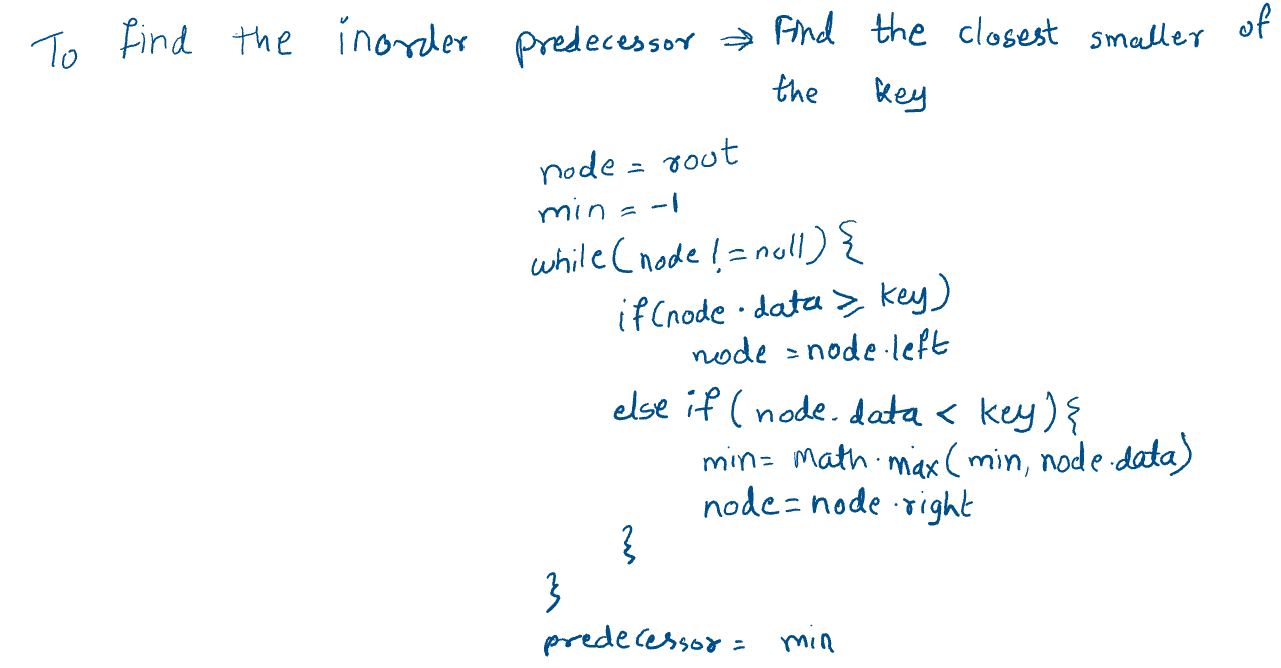 To find the inorder predecessor ⇒ Find the closest smaller of
the key
node = root
min = -1
while(node != null) {
if(node.data ≥ key)
node = node.left
else if (node.data < key) {
min = Math.max(min, node.data)
node = node.right
}
}
predecessor = min